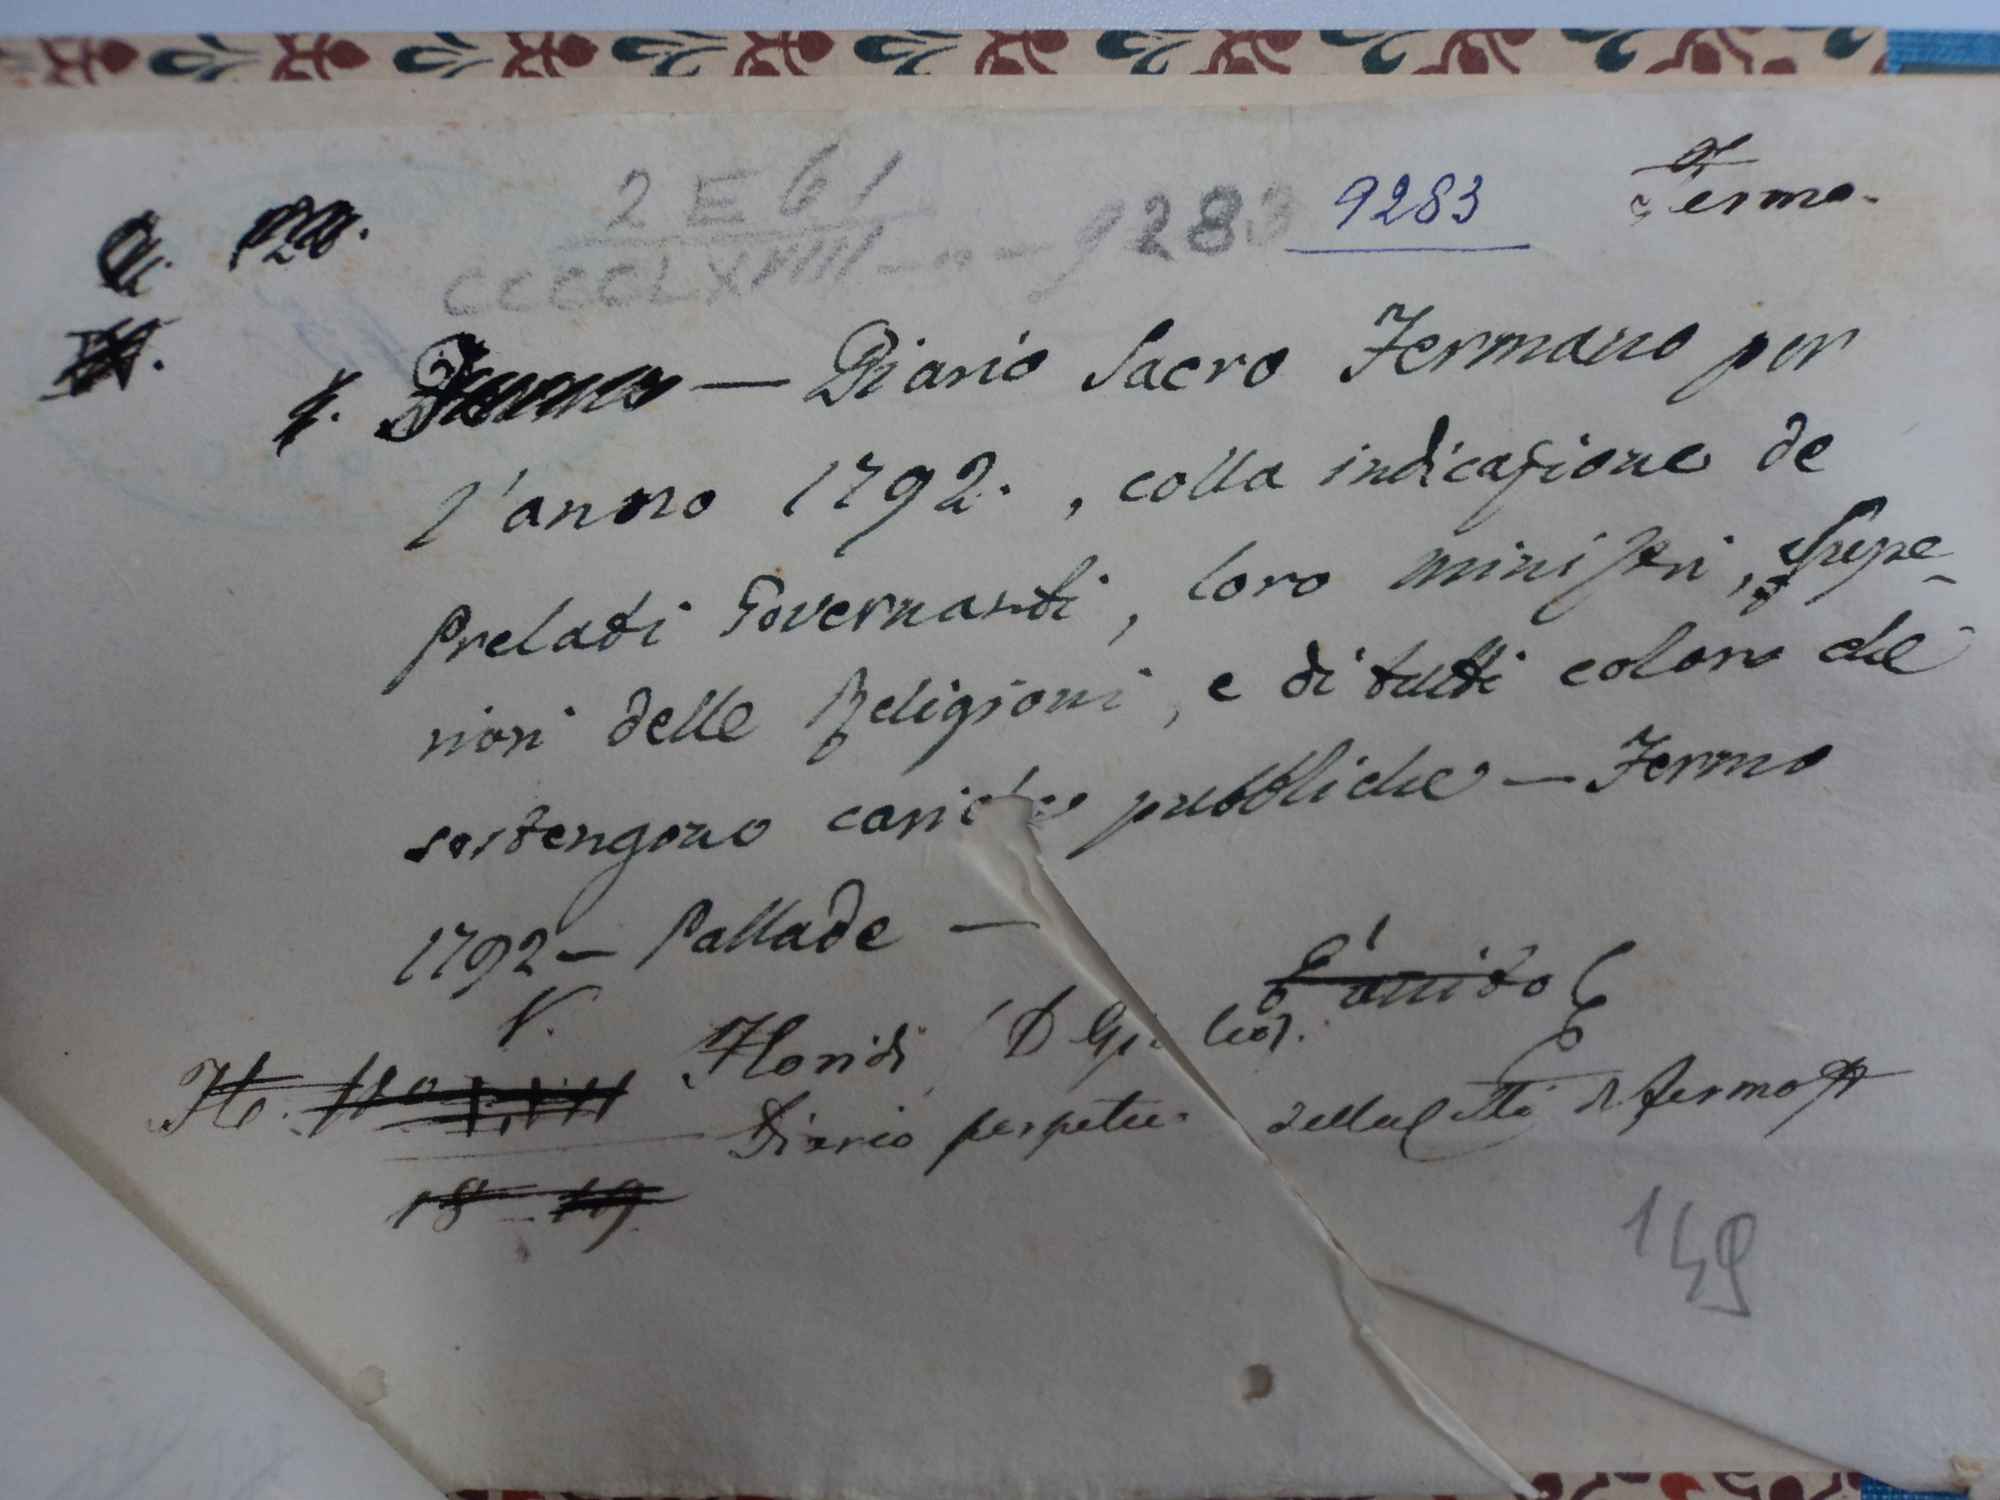 2 E 61
CCCCLXVIIII - " - 9283
9283
Fermo.
— Diario Sacro Fermano per
l'anno 1792. , colla indicazione de
Prelati Governanti, loro ministri, Supe-
riori delle Religioni, e di tutti coloro che
sostengono cariche pubbliche — Fermo
1792 — Pallade —
V. Floridi, D Leop.
Diario perpetuo della Città di Fermo
149